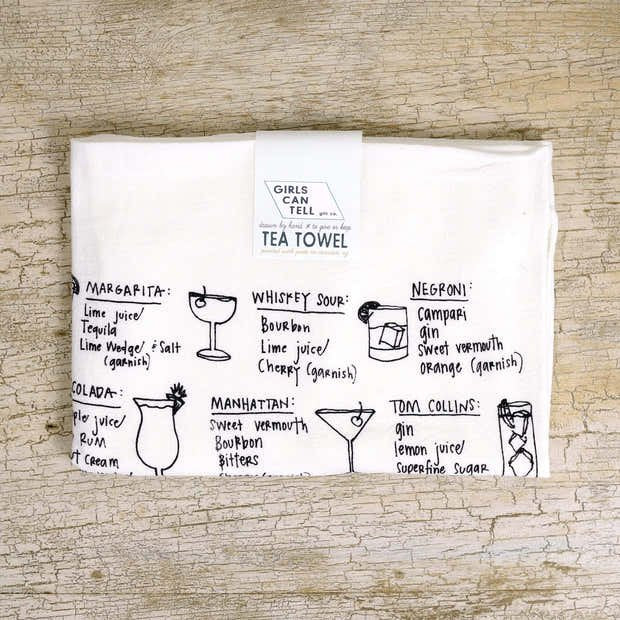 GIRLS
CAN
TELL
gift co.
drawn by hand to give or keep
TEA TOWEL
MARGARITA:
Lime juice/
Tequila
Lime Wedge/ & Salt
(garnish)
WHISKEY SOUR:
Bourbon
Lime juice/
Cherry (garnish)
NEGRONI:
Campari
gin
Sweet vermouth
orange (garnish)
COLADA:
juice/
RUM
Cream
MANHATTAN:
Sweet vermouth
Bourbon
Bitters
TOM COLLINS:
gin
lemon juice/
Superfine Sugar